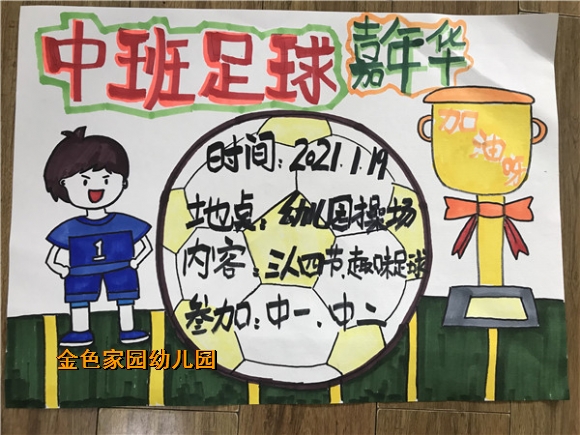 中班足球嘉年华
加油呀
时间：2021.1.19
地点：幼儿园操场
内容：三人四节，趣味足球
参加：中一、中二
1
金色家园幼儿园